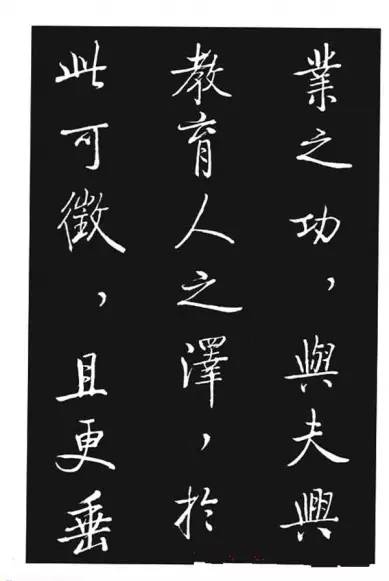 業之功，與夫興
教育人之澤，於
此可徵，且更垂